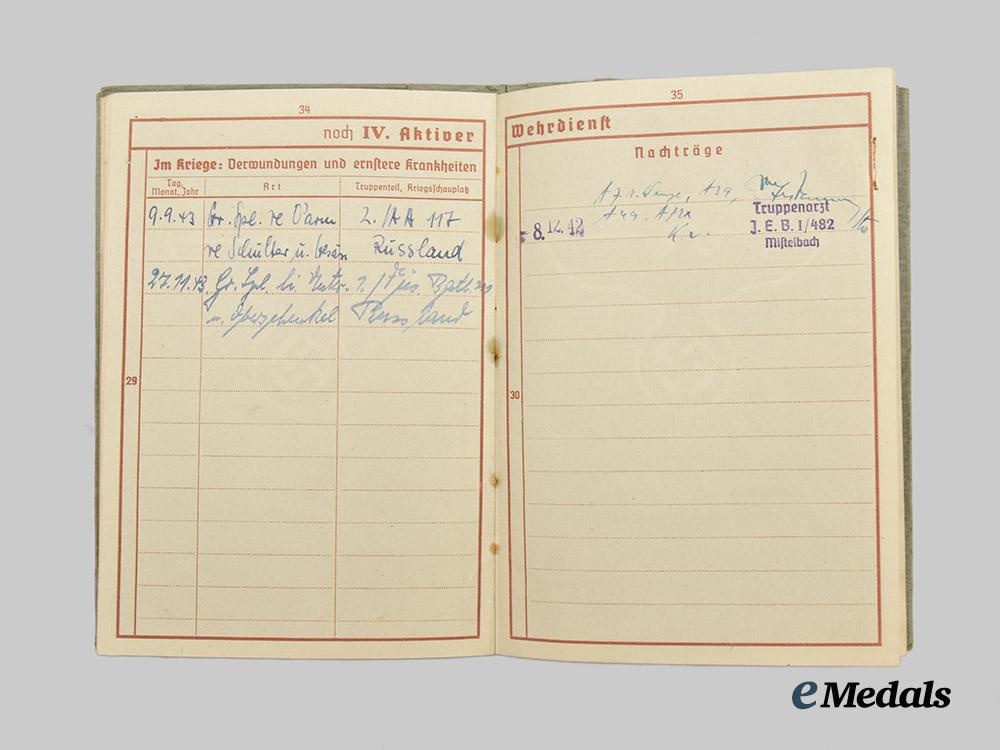 34
noch IV. Aktiver
Im Kriege: Verwundungen und ernstere Krankheiten
Tag, Monat, Jahr
Art
Truppenteil, Kriegsschauplatz
9.9.43 Gr. Spl. re O'arm 2./AA 117
re Schulter u. Russland
27.11.43. Gr. Spl. li.
u. Oberschenkel Russland
29
35
Wehrdienst
Nachträge
A 39,
A 49.
8. 12. 42
Truppenarzt
J. E. B. I/482
Mistelbach
30
eMedals